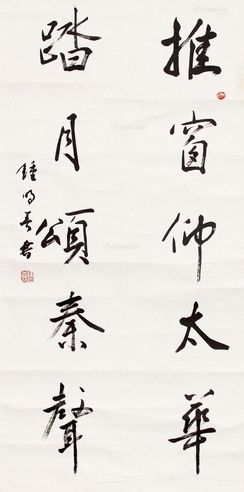 推窗仰太華
踏月頌秦聲
鍾明善書